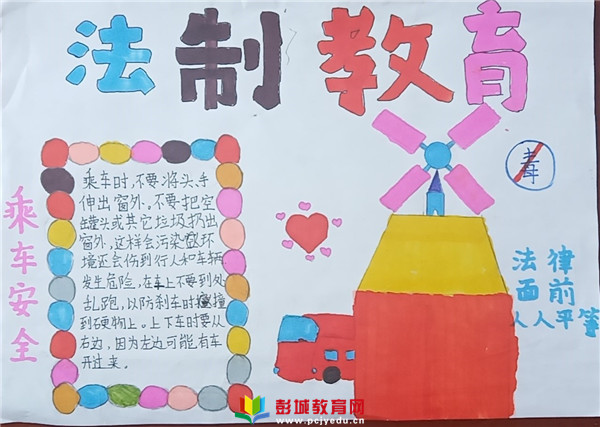 法制教育
乘车安全
乘车时,不要将头手
伸出窗外。不要把空
罐头或其它垃圾扔出
窗外,这样会污染环
境还会伤到行人和车辆
发生危险,在车上不要到处
乱跑,以防刹车时撞
到硬物上。上下车时要从
右边,因为左边可能有车
开过来。
毒
法律
面前
人人平等
彭城教育网
www.pcjyedu.cn